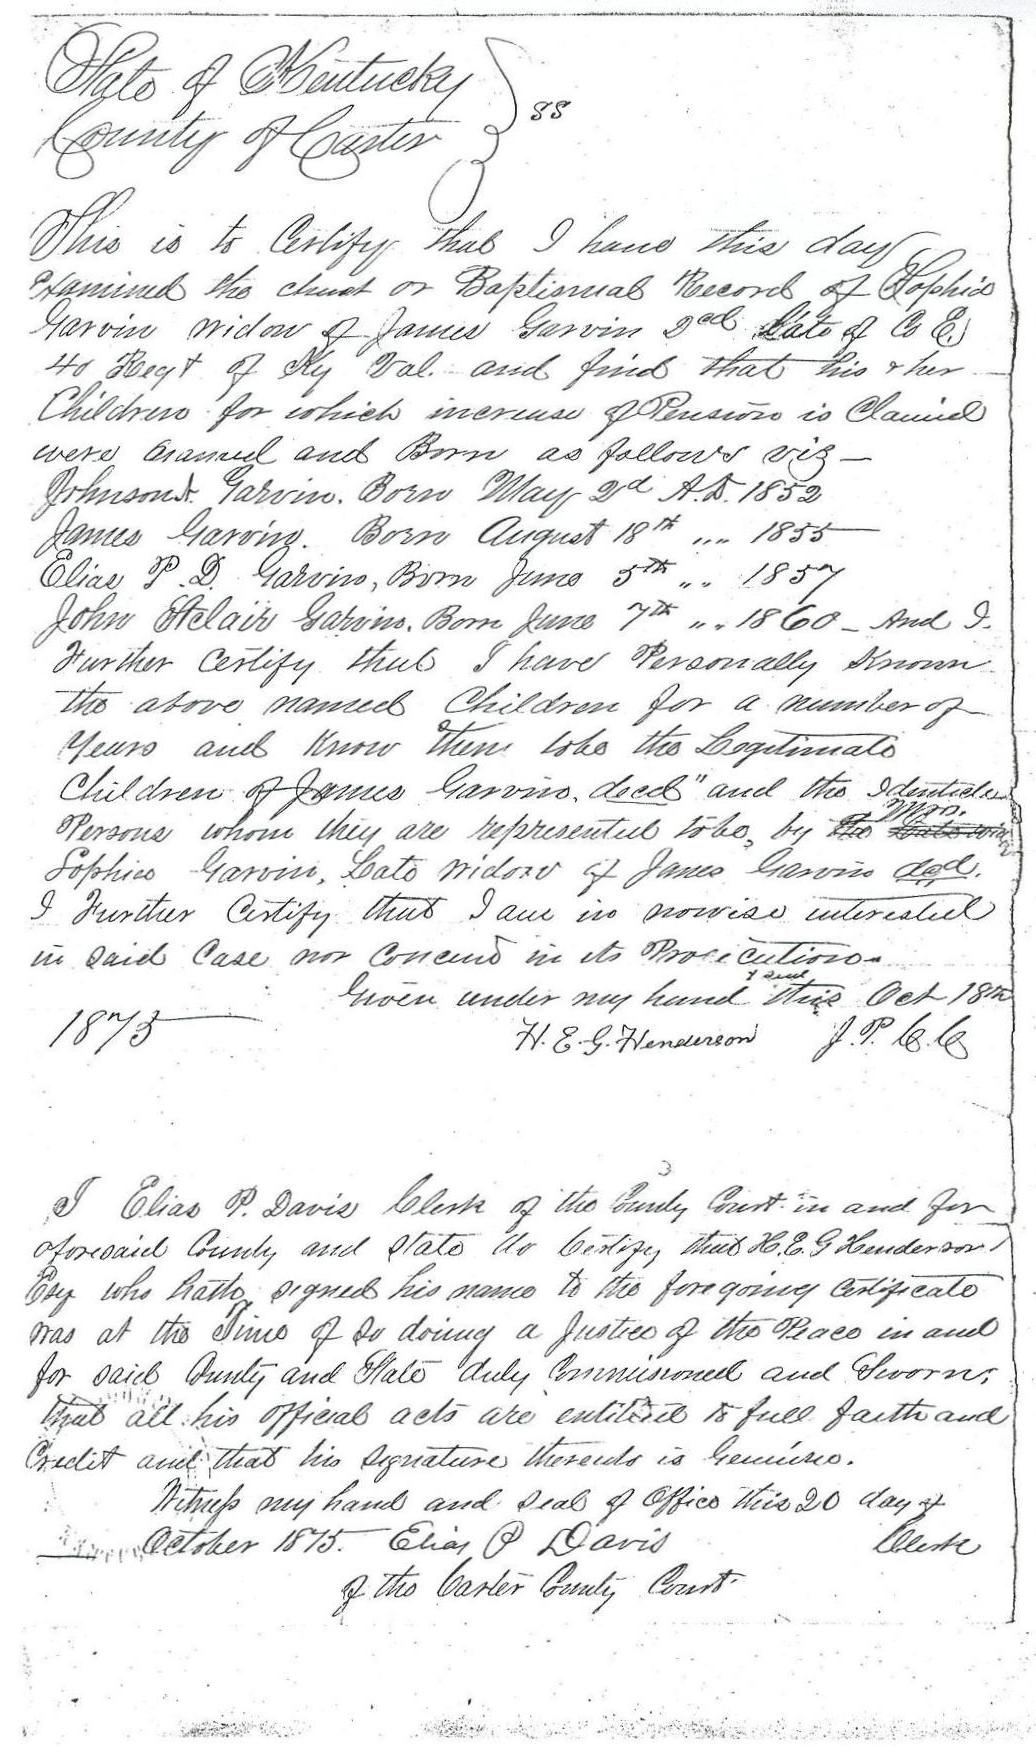 State of Kentucky
County of Carter } SS
This is to Certify that I have this day
examined the church or Baptismal Record of Sophia
Garvin widow of James Garvin decd Late of Co E.
40 Regt of Ky Vol. and find that his & her
Children for which increase of Pension is Claimed
were named and Born as follows viz—
Johnson Garvin. Born May 2d A.D. 1852
James Garvin. Born August 18th ,, ,, 1855
Elias P. D. Garvin, Born June 5th ,, ,, 1857
John Garvin. Born June 7th ,, ,, 1860 – And I.
Further Certify that I have Personally Known
the above named Children for a number of
Years and Know them to be the Legitimate
Children of James Garvin, decd" and the Identicle
Mrs.
Persons whom they are represented to be, by the Late widow
Sophia Garvin, Late widow of James Garvin decd.
I Further Certify that I am in nowise interested
in said Case nor Concernd in its Prosecution.
& seal
Given under my hand this Oct 18th
1875 H. E. G. Henderson J. P. C. C
I Elias P. Davis Clerk of the County Court in and for
aforesaid County and State do Certify that H. E. G Henderson
Esq who hath signed his name to the foregoing Certificate
was at the Time of so doing a Justice of the Peace in and
for said County and State duly Commissioned and Sworn;
that all his official acts are entitled to full faith and
Credit and that his signature thereto is Genuine.
Witness my hand and seal of Office this 20 day of
October 1875. Elias P Davis Clerk
of the Carter County Court